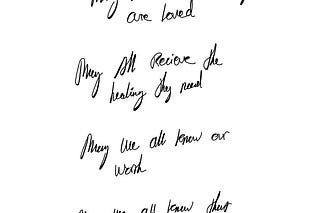 May
are loved
May All Recieve the
healing they need
May We all know our
Worth
May We all know that